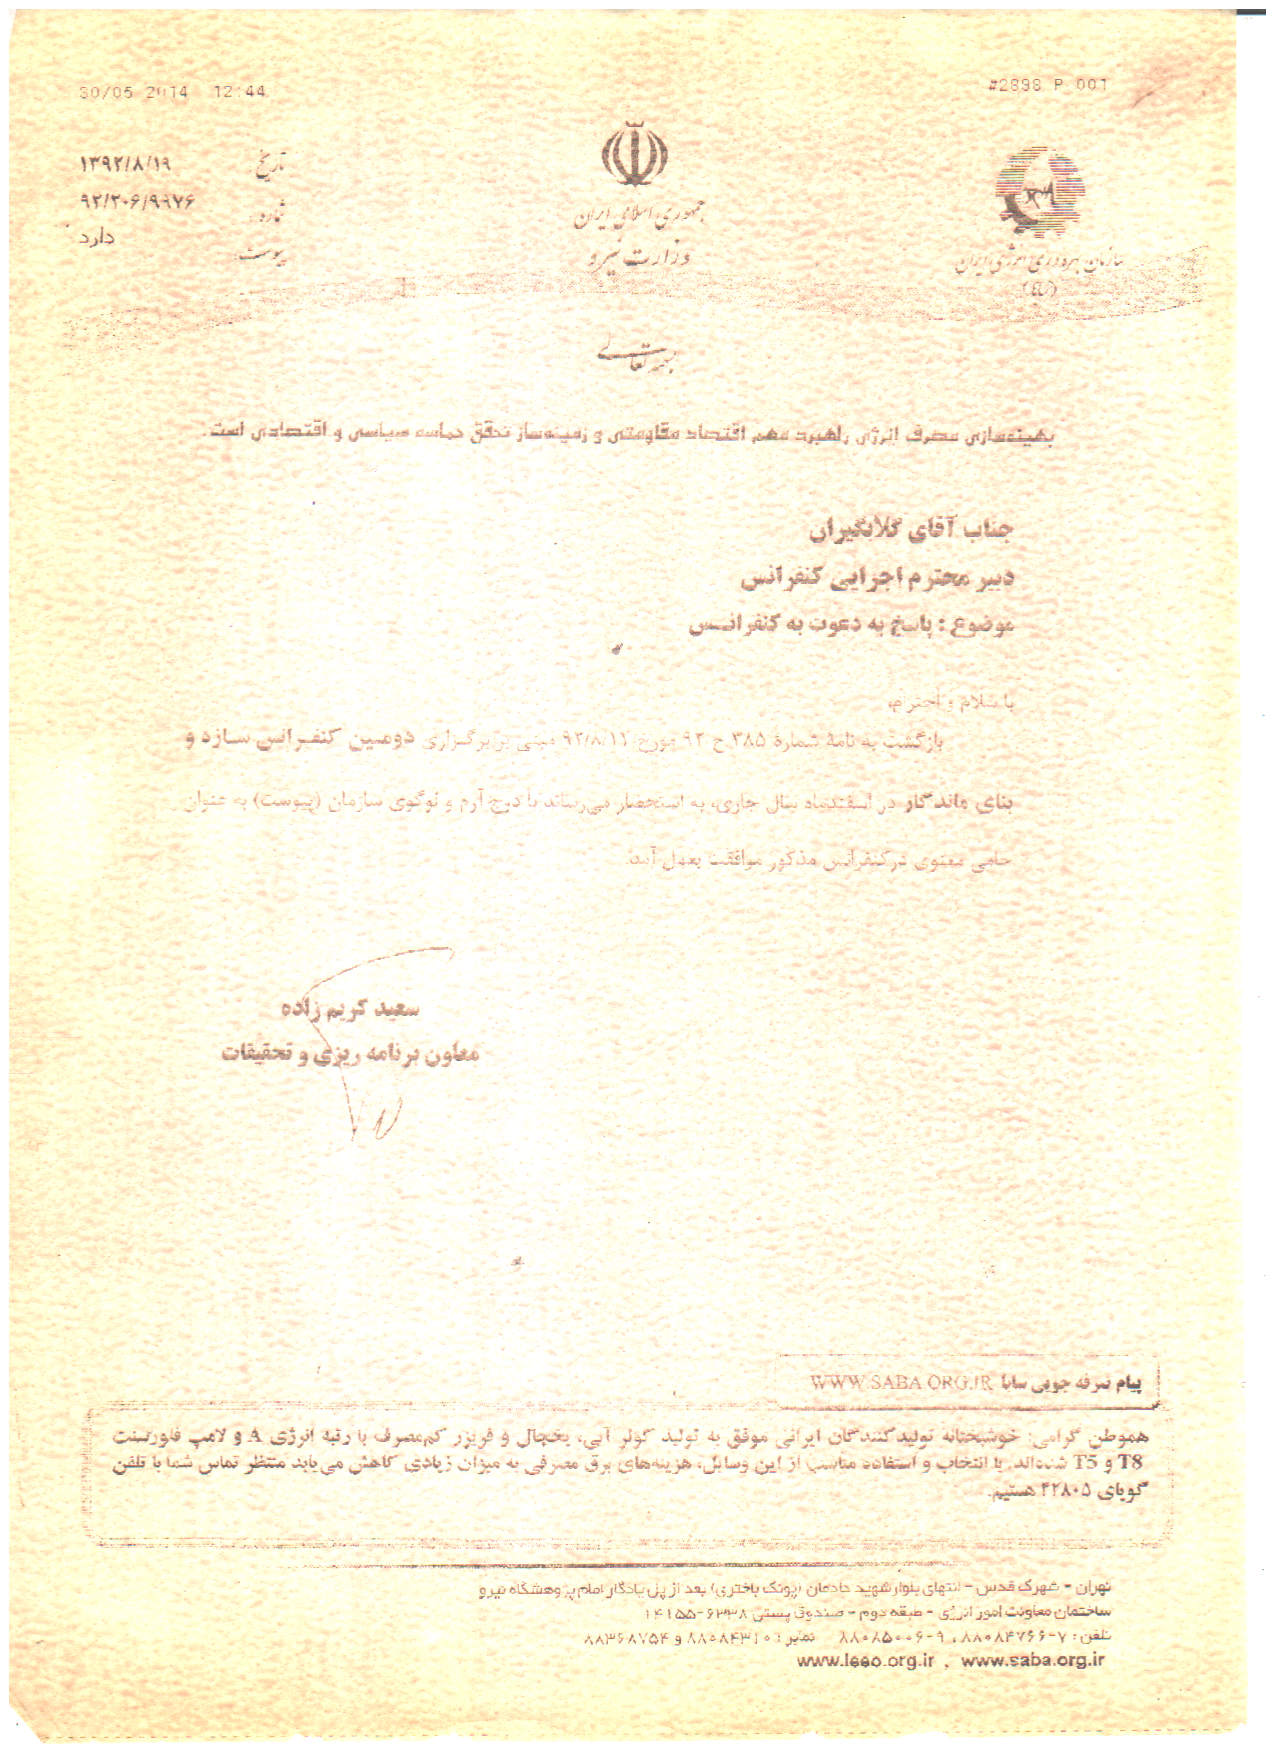 30/05 2014 12:44
#2898 P 001
تاریخ ۱۳۹۲/۸/۱۹
شماره: ۹۲/۲۰۶/۹۹۷۶
پیوست: دارد
جمهوری اسلامی ایران
وزارت نیرو
سازمان بهره‌وری انرژی ایران
(سابا)
بسمه تعالی
بهینه‌سازی مصرف انرژی راهبرد مهم اقتصاد مقاومتی و زمینه‌ساز تحقق حماسه سیاسی و اقتصادی است.
جناب آقای گلابگیران
دبیر محترم اجرایی کنفرانس
موضوع : پاسخ به دعوت به کنفرانس
با سلام و احترام،
بازگشت به نامه شمارهٔ ۳۸۵ ح ۹۲ مورخ ۹۲/۸/۱۲ مبنی بر برگزاری دومین کنفرانس سازه و
بنای ماندگار در اسفندماه سال جاری، به استحضار می‌رساند با درج آرم و لوگوی سازمان (پیوست) به عنوان
حامی معنوی در کنفرانس مذکور موافقت بعمل آمد.
سعید کریم زاده
معاون برنامه ریزی و تحقیقات
پیام صرفه جویی سابا WWW.SABA.ORG.IR
هموطن گرامی: خوشبختانه تولیدکنندگان ایرانی موفق به تولید کولر آبی، یخچال و فریزر کم‌مصرف با رتبه انرژی A و لامپ فلورسنت
T8 و T5 شده‌اند. با انتخاب و استفاده مناسب از این وسایل، هزینه‌های برق مصرفی به میزان زیادی کاهش می‌یابد منتظر تماس شما با تلفن
گویای ۴۲۸۰۵ هستیم.
تهران - شهرک قدس - انتهای بلوار شهید دادمان (پونک باختری) بعد از پل یادگار امام پژوهشگاه نیرو
ساختمان معاونت امور انرژی - طبقه دوم - صندوق پستی ۶۳۳۸-۱۴۱۵۵
تلفن: ۷-۸۸۰۸۴۷۶۶ ، ۹-۸۸۰۸۵۰۰۶ نمابر: ۸۸۰۸۴۳۱۰ و ۸۸۳۶۸۷۵۴
www.ieeo.org.ir , www.saba.org.ir